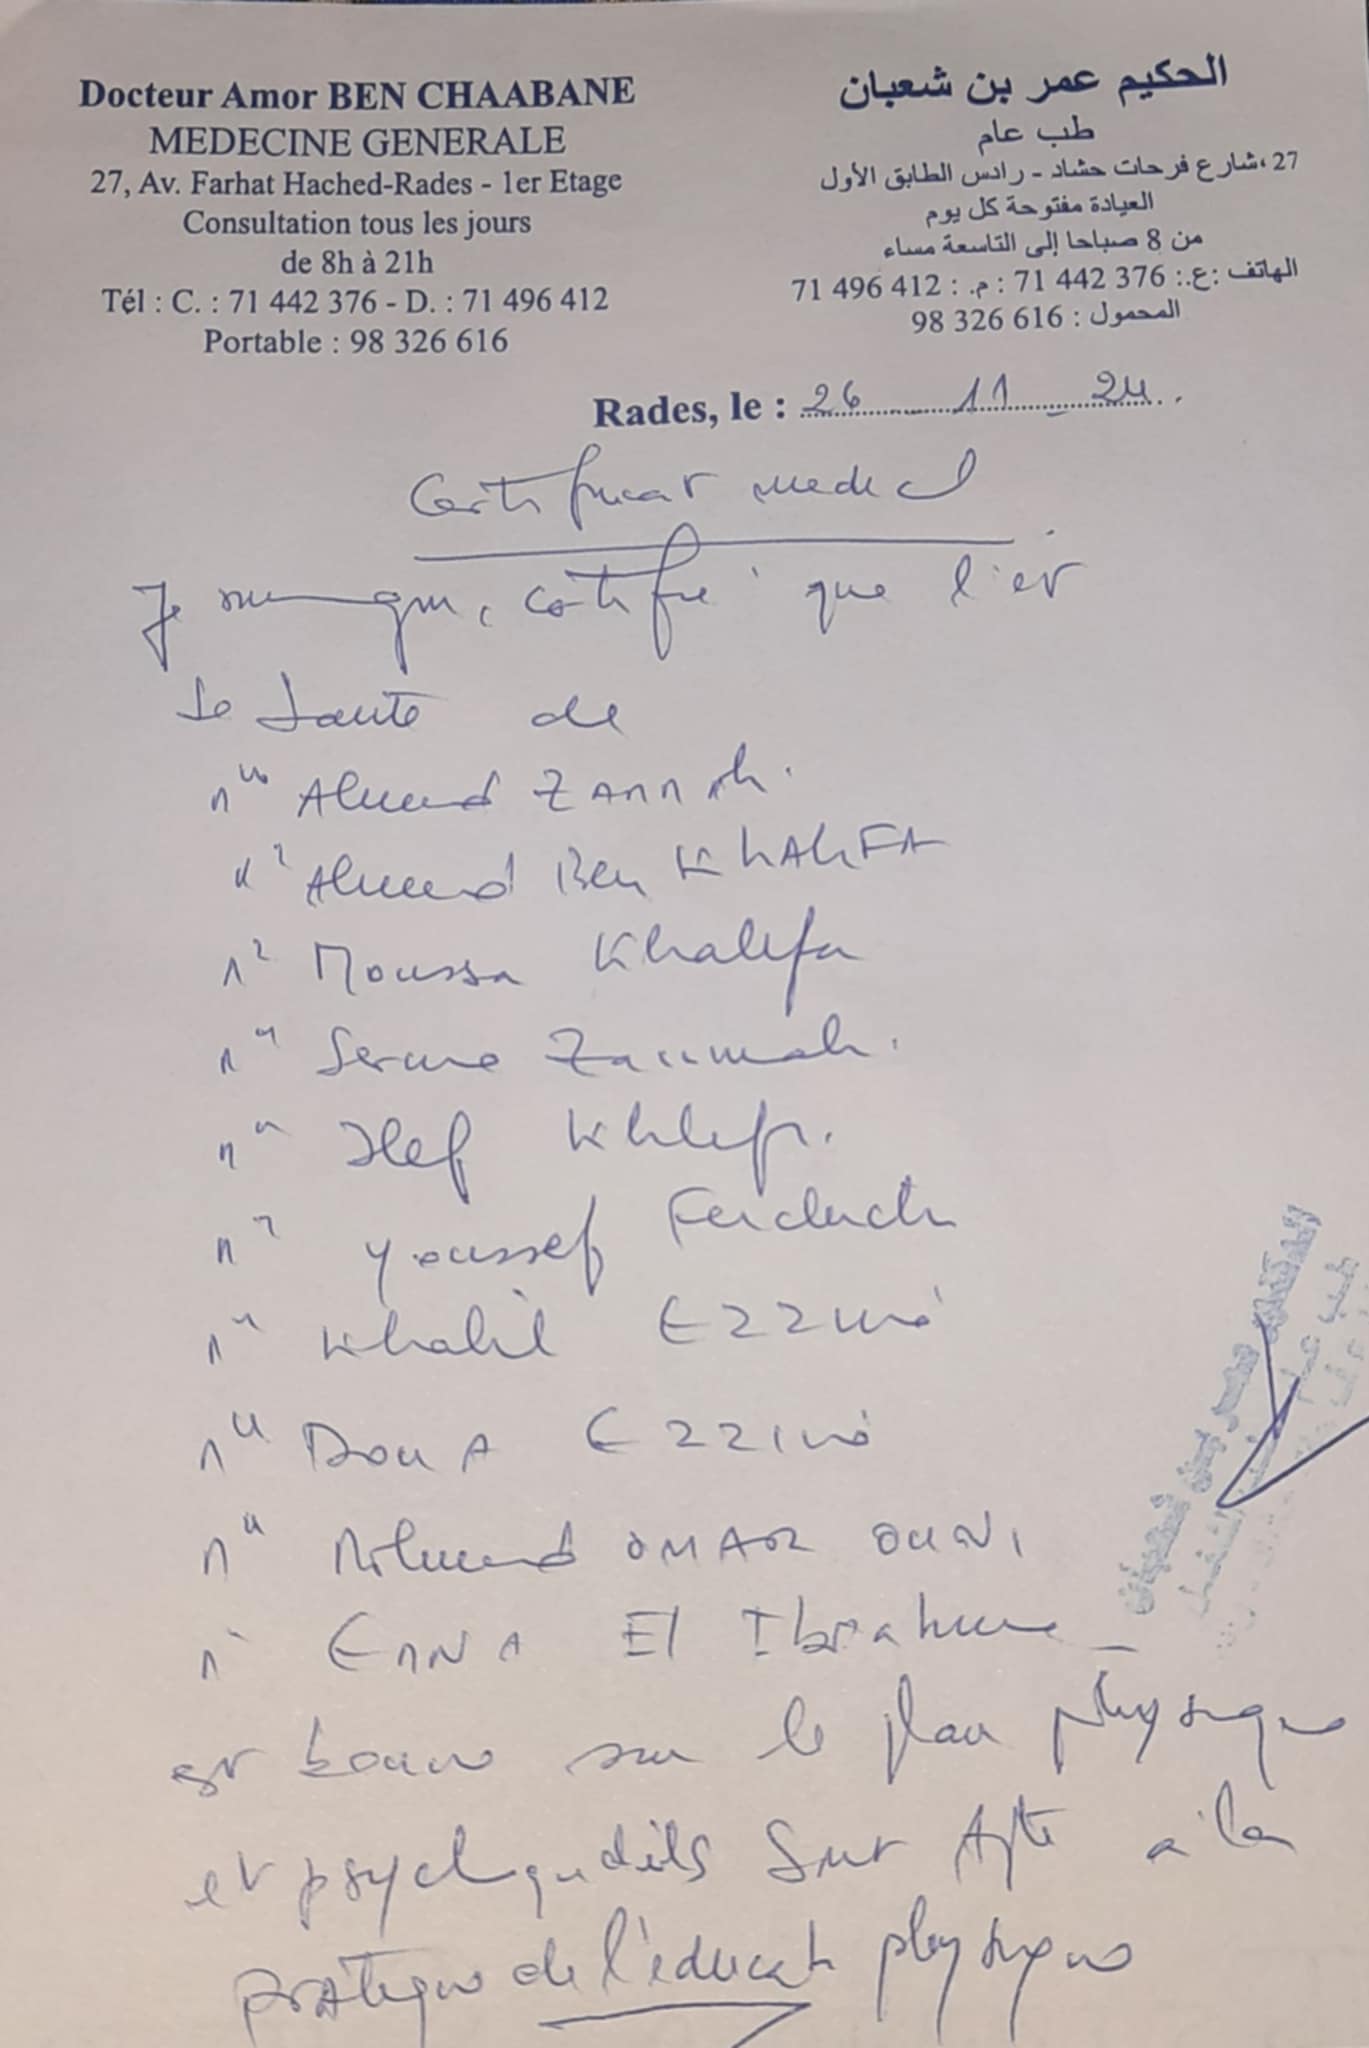 Docteur Amor BEN CHAABANE
MEDECINE GENERALE
27, Av. Farhat Hached-Rades - 1er Etage
Consultation tous les jours
de 8h à 21h
Tél : C. : 71 442 376 - D. : 71 496 412
Portable : 98 326 616
الحكيم عمر بن شعبان
طب عام
27، شارع فرحات حشاد - رادس الطابق الأول
العيادة مفتوحة كل يوم
من 8 صباحا إلى التاسعة مساء
الهاتف :ع.: 376 442 71 : م. : 412 496 71
المحمول : 616 326 98
Rades, le : 26 11 24
Certificat medical
Je certifie que l'et
de Santé de
Ahmed
Ahmed Ben KhAliFA
Moussa Khalifa
Ilef
Youssef
Khalil Ezzine
DouA Ezzine
Mohamed OMAR OUNI
El Ibrahim
est bonne sur le plan physique
et psychique dils Sont Apte a la
pratique de l'éducat physique
الحكيم عمر بن شعبان